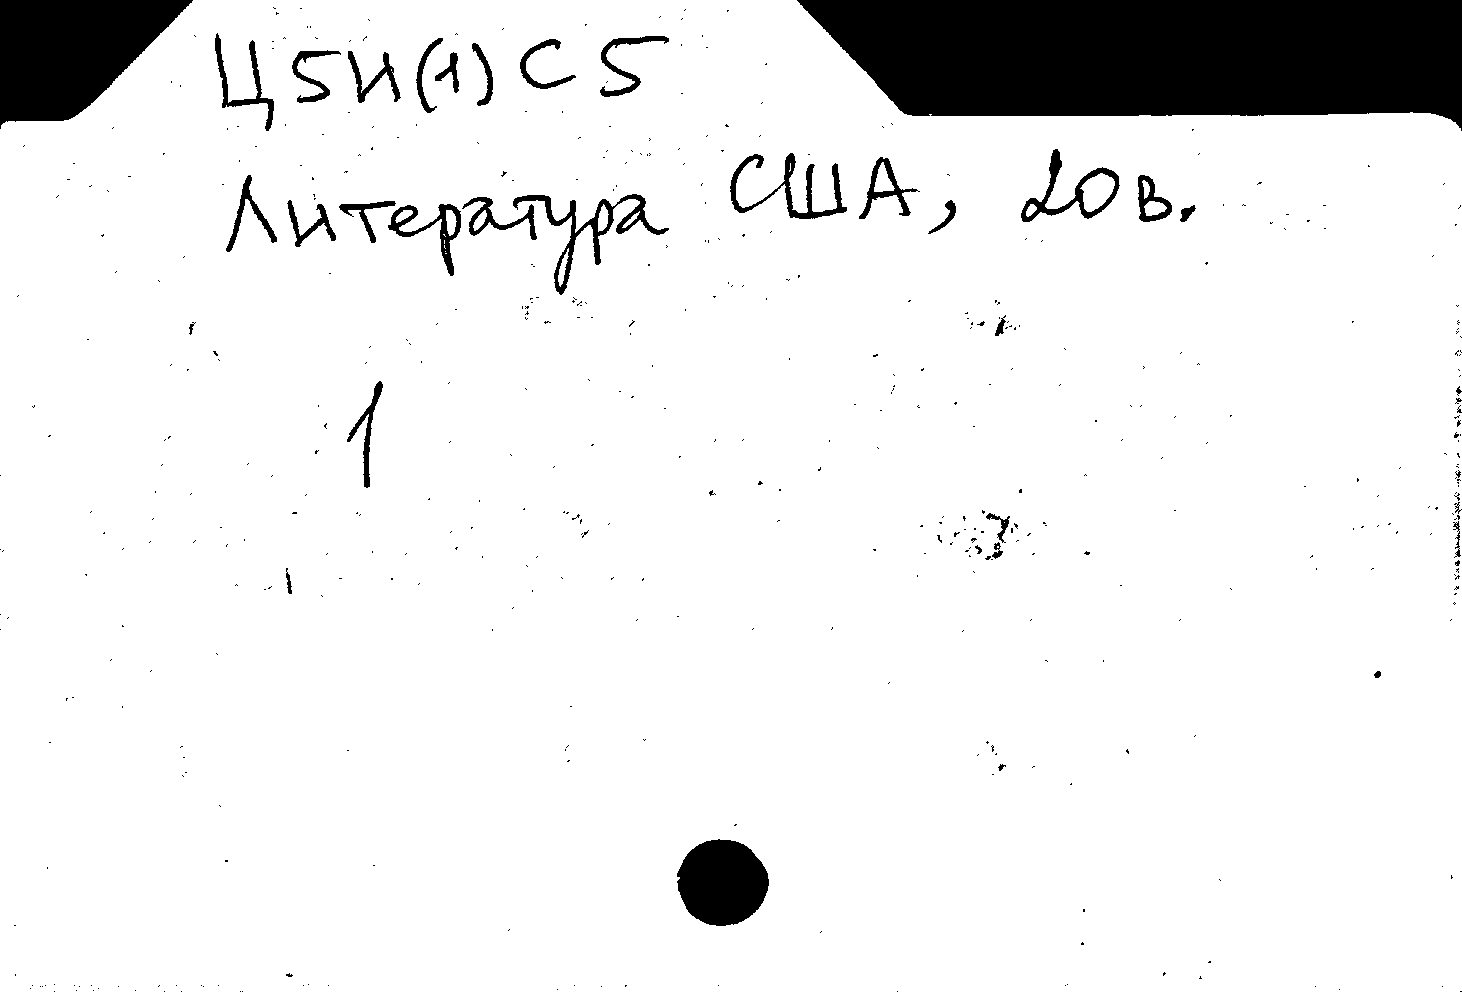 Ц5И(1)С5
Литература США, 20в.
1